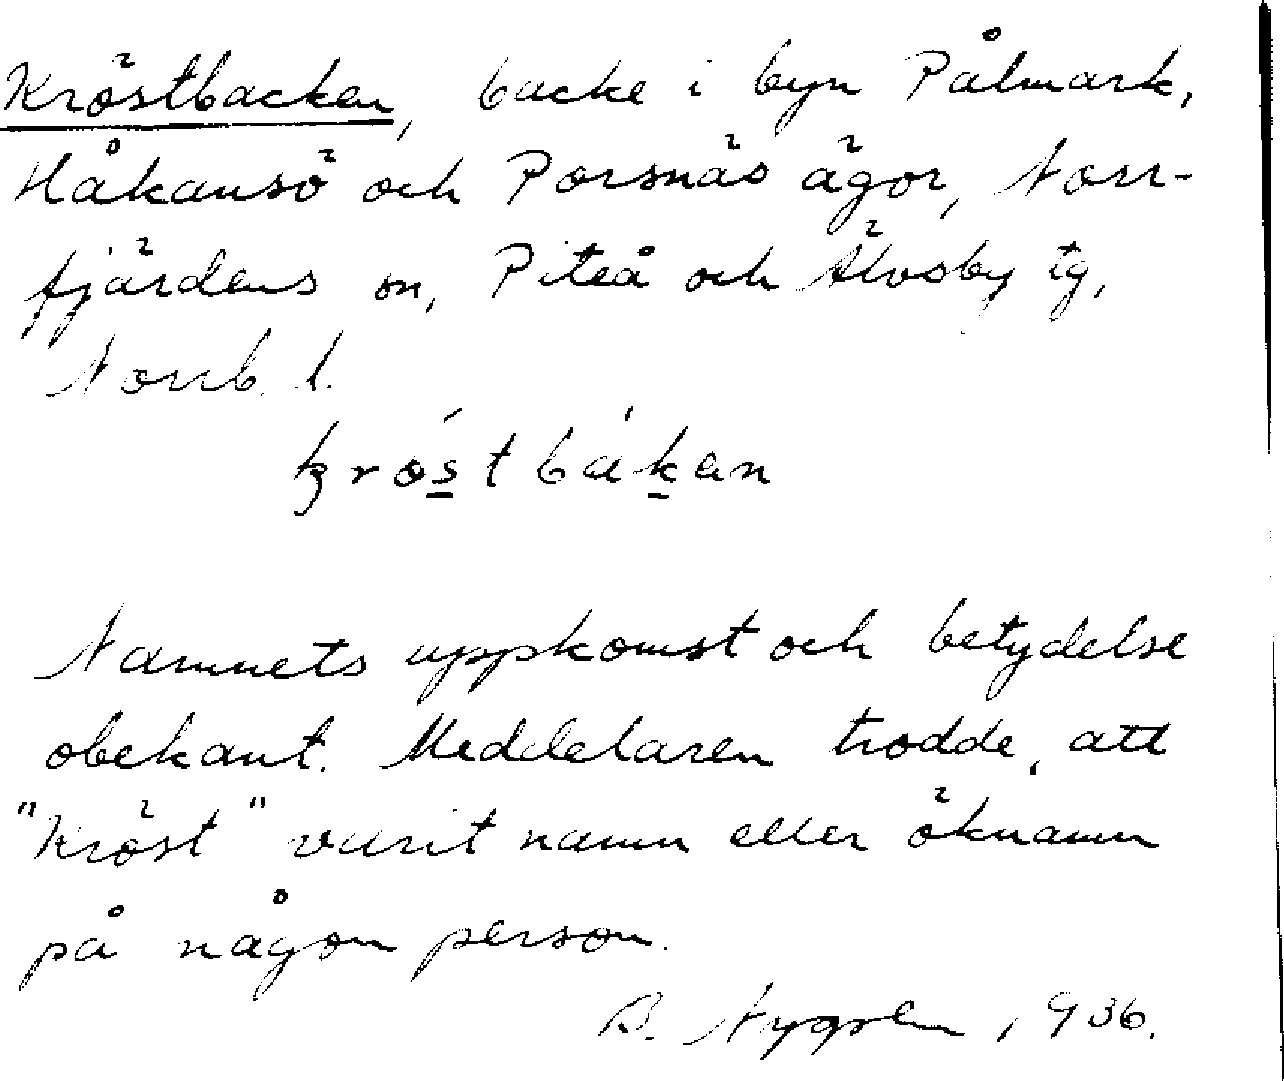 Kröstbacken, backe i byn Pålmark,
Håkansö och Porsnäs ägor, Norr-
fjärdens sn, Piteå och Älvsby tg,
Norrb. l.
króstbákan
Namnets uppkomst och betydelse
obekant. Meddelaren trodde, att
"Kröst" varit namn eller öknamn
på någon person.
B. Nygren, 1936.